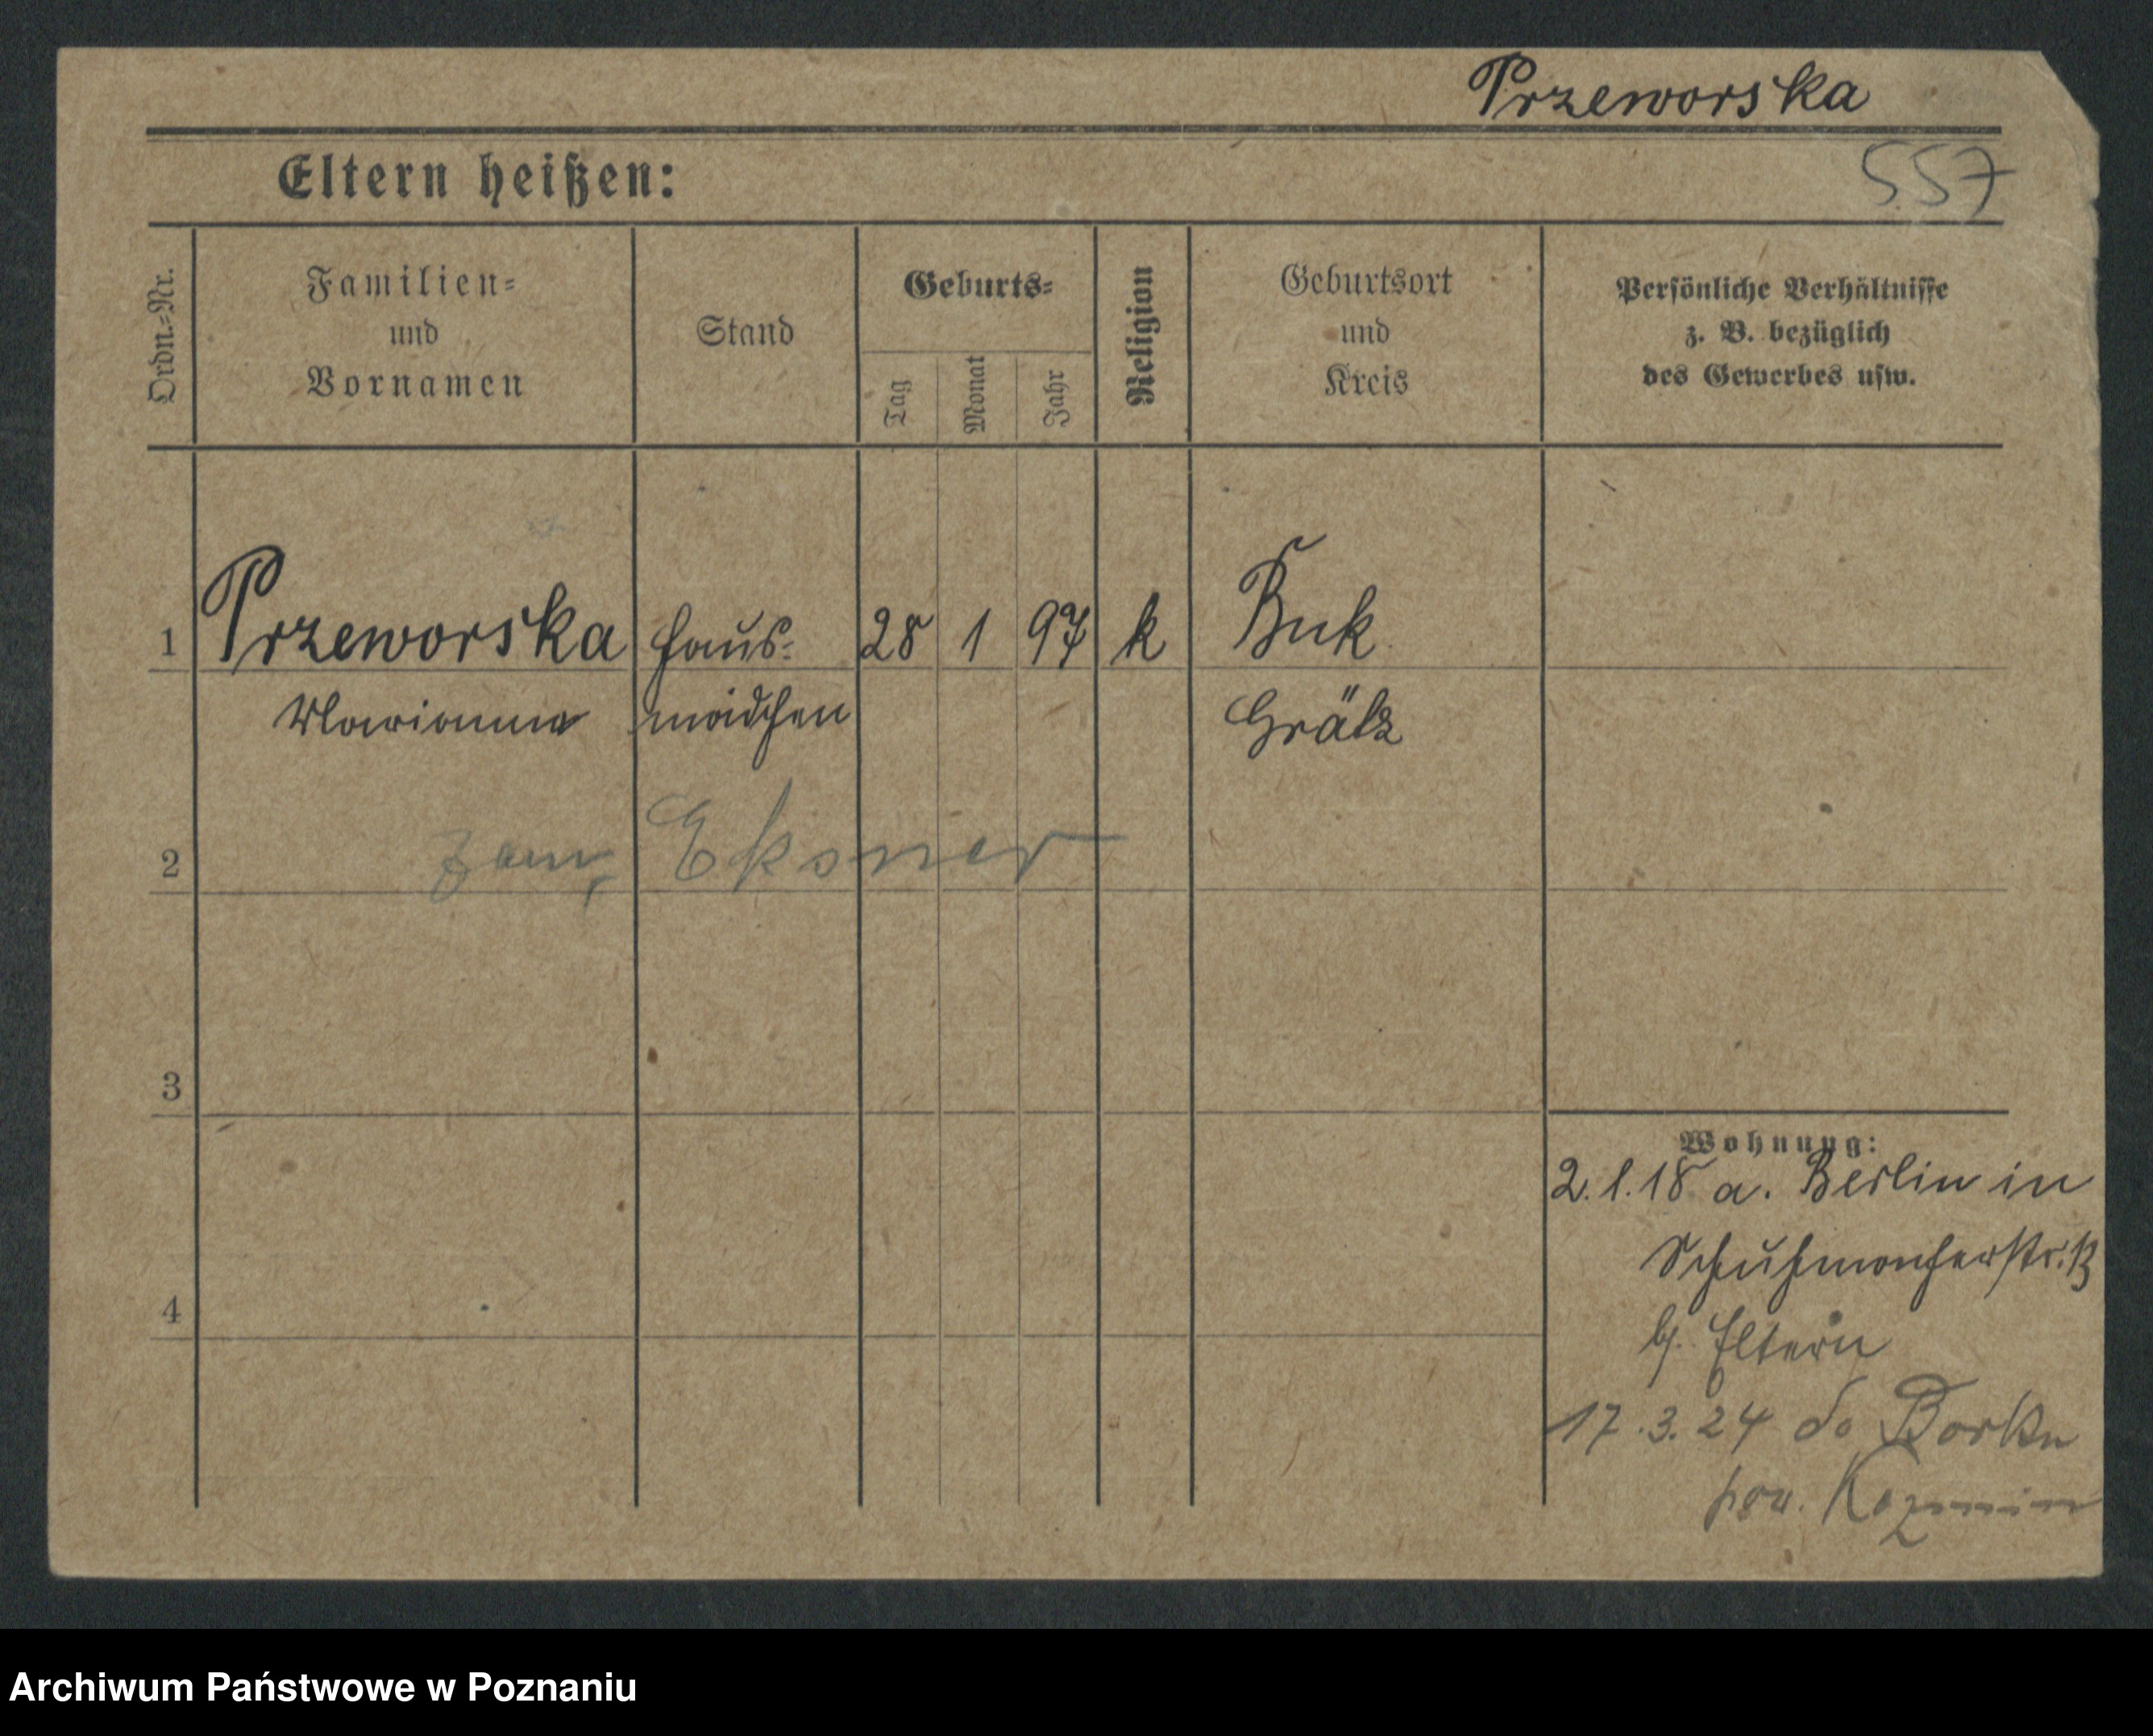 Przeworska
557
Eltern heißen:
Ordn.=Nr.
Familien=
und
Vornamen
Stand
Geburts=
Tag
Monat
Jahr
Religion
Geburtsort
und
Kreis
Persönliche Verhältnisse
z. B. bezüglich
des Gewerbes usw.
1 Przeworska Haus= 28 1 97 k Buk
Marianna mädchen Grätz
2 zam. Eksner
3
4
Wohnung:
2.1.18 a. Berlin in
Schuhmacherstr. 13
b. Eltern
17.3.24 do
pow.
Archiwum Państwowe w Poznaniu